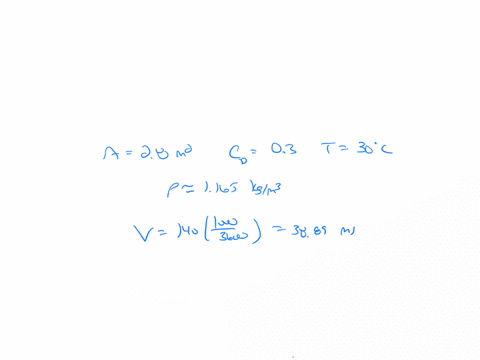 A = 2.8 m² C_D = 0.3 T = 30°C
ρ ≈ 1.165 kg/m³
V = 140 (1000/3600) = 38.89 m/s